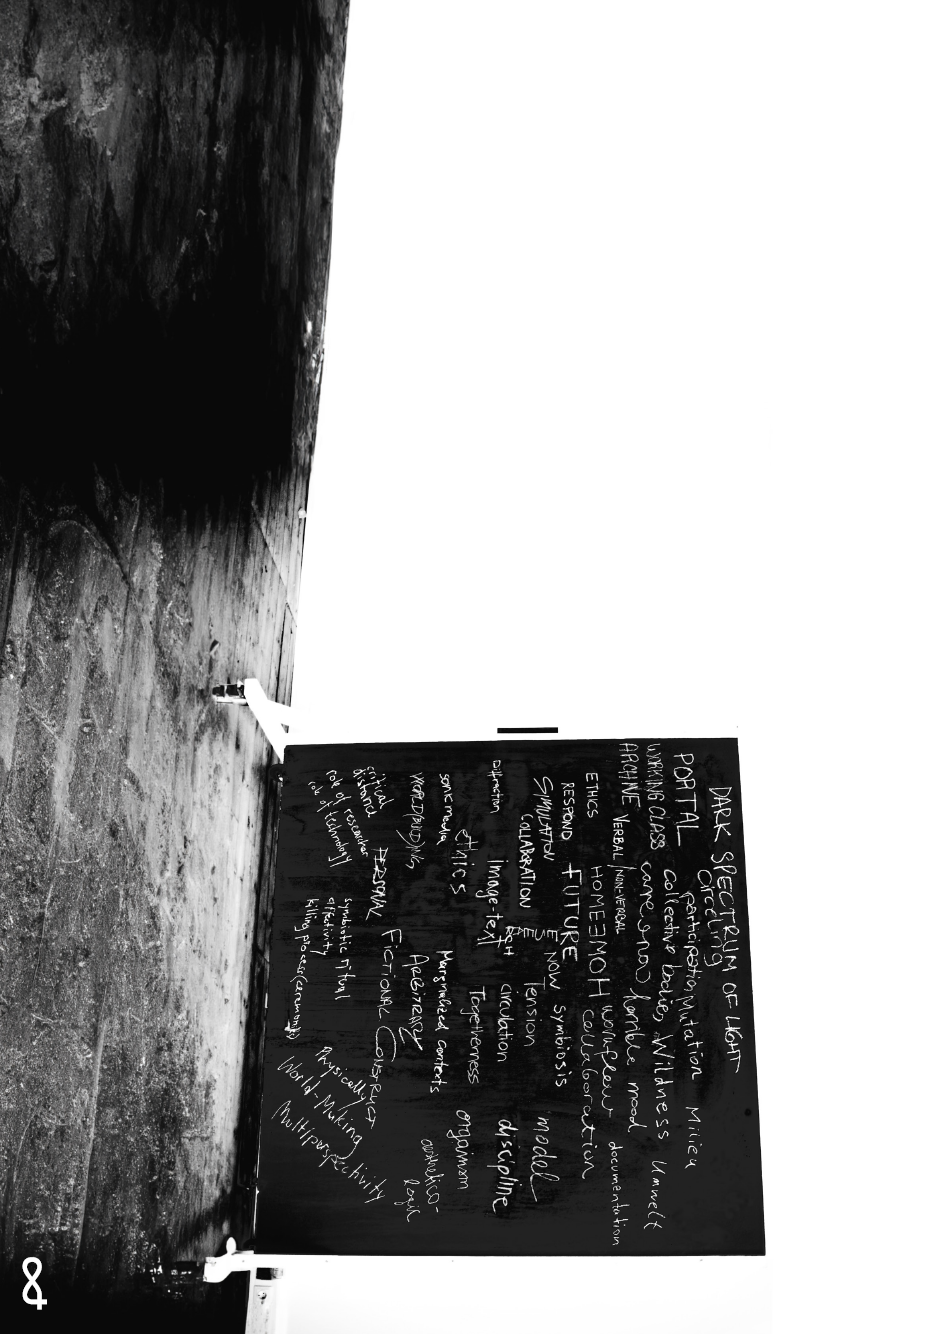 DARK SPECTRUM OF LIGHT
circeling
PORTAL participation, Mutation Milieu
WORKING CLASS collective bodies, Wildness Umwelt
ARCHIVE horrible mood
VERBAL/NON-VERBAL documentation
ETHICS HOMEEMOH collaboration
RESPOND FUTURE
SIMULATION NOW Symbiosis
COLLABORATION Tension model
Diffraction image-text circulation discipline
ethics Togetherness
sonic media Marginalized contexts organism
WORLDBUILDING ARBITRARY aesthetico-
logic
PERSONAL FICTIONAL CONSTRUCT
critical
distance
role of researcher
role of technology
symbiotic ritual
affectivity
killing process (ceremony)
Physicality
World-Making
Multiperspectivity
8